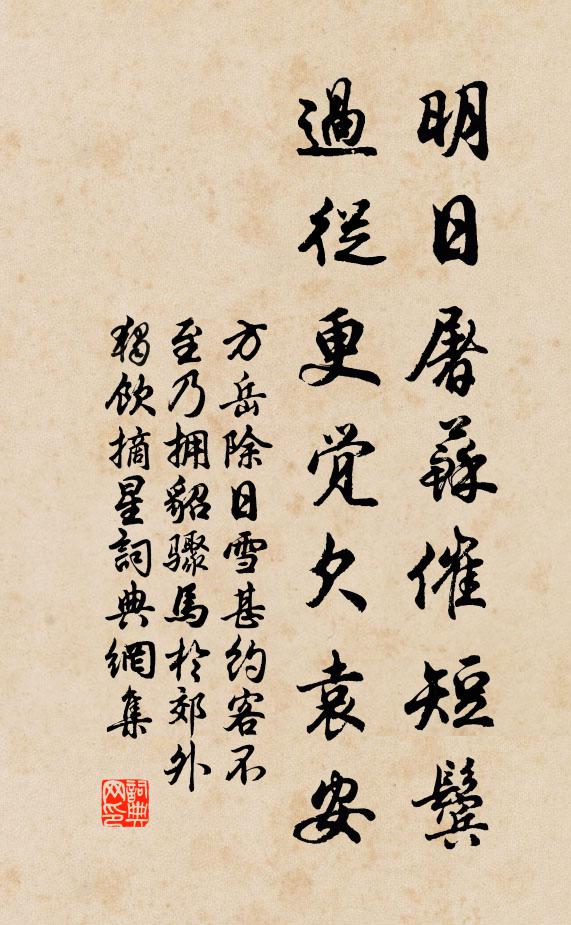 明日屠蘇催短鬢
過從更覺欠袁安
方岳除日雪甚約客不
至乃拥貂驟馬於郊外
獨飲摘星詞典網集
詞典网印